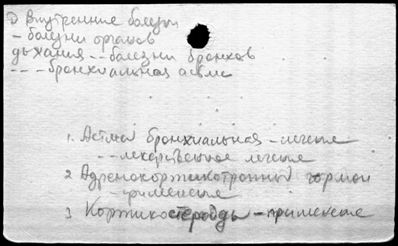 D Внутренние болезни
- болезни органов
дыхания - - болезни бронхов
- - - бронхиальная астма
1. Астма бронхиальная - лечение
- - лекарственное лечение
2 Адренокортикотропный гормон
- применение
3 Кортикостероиды - применение